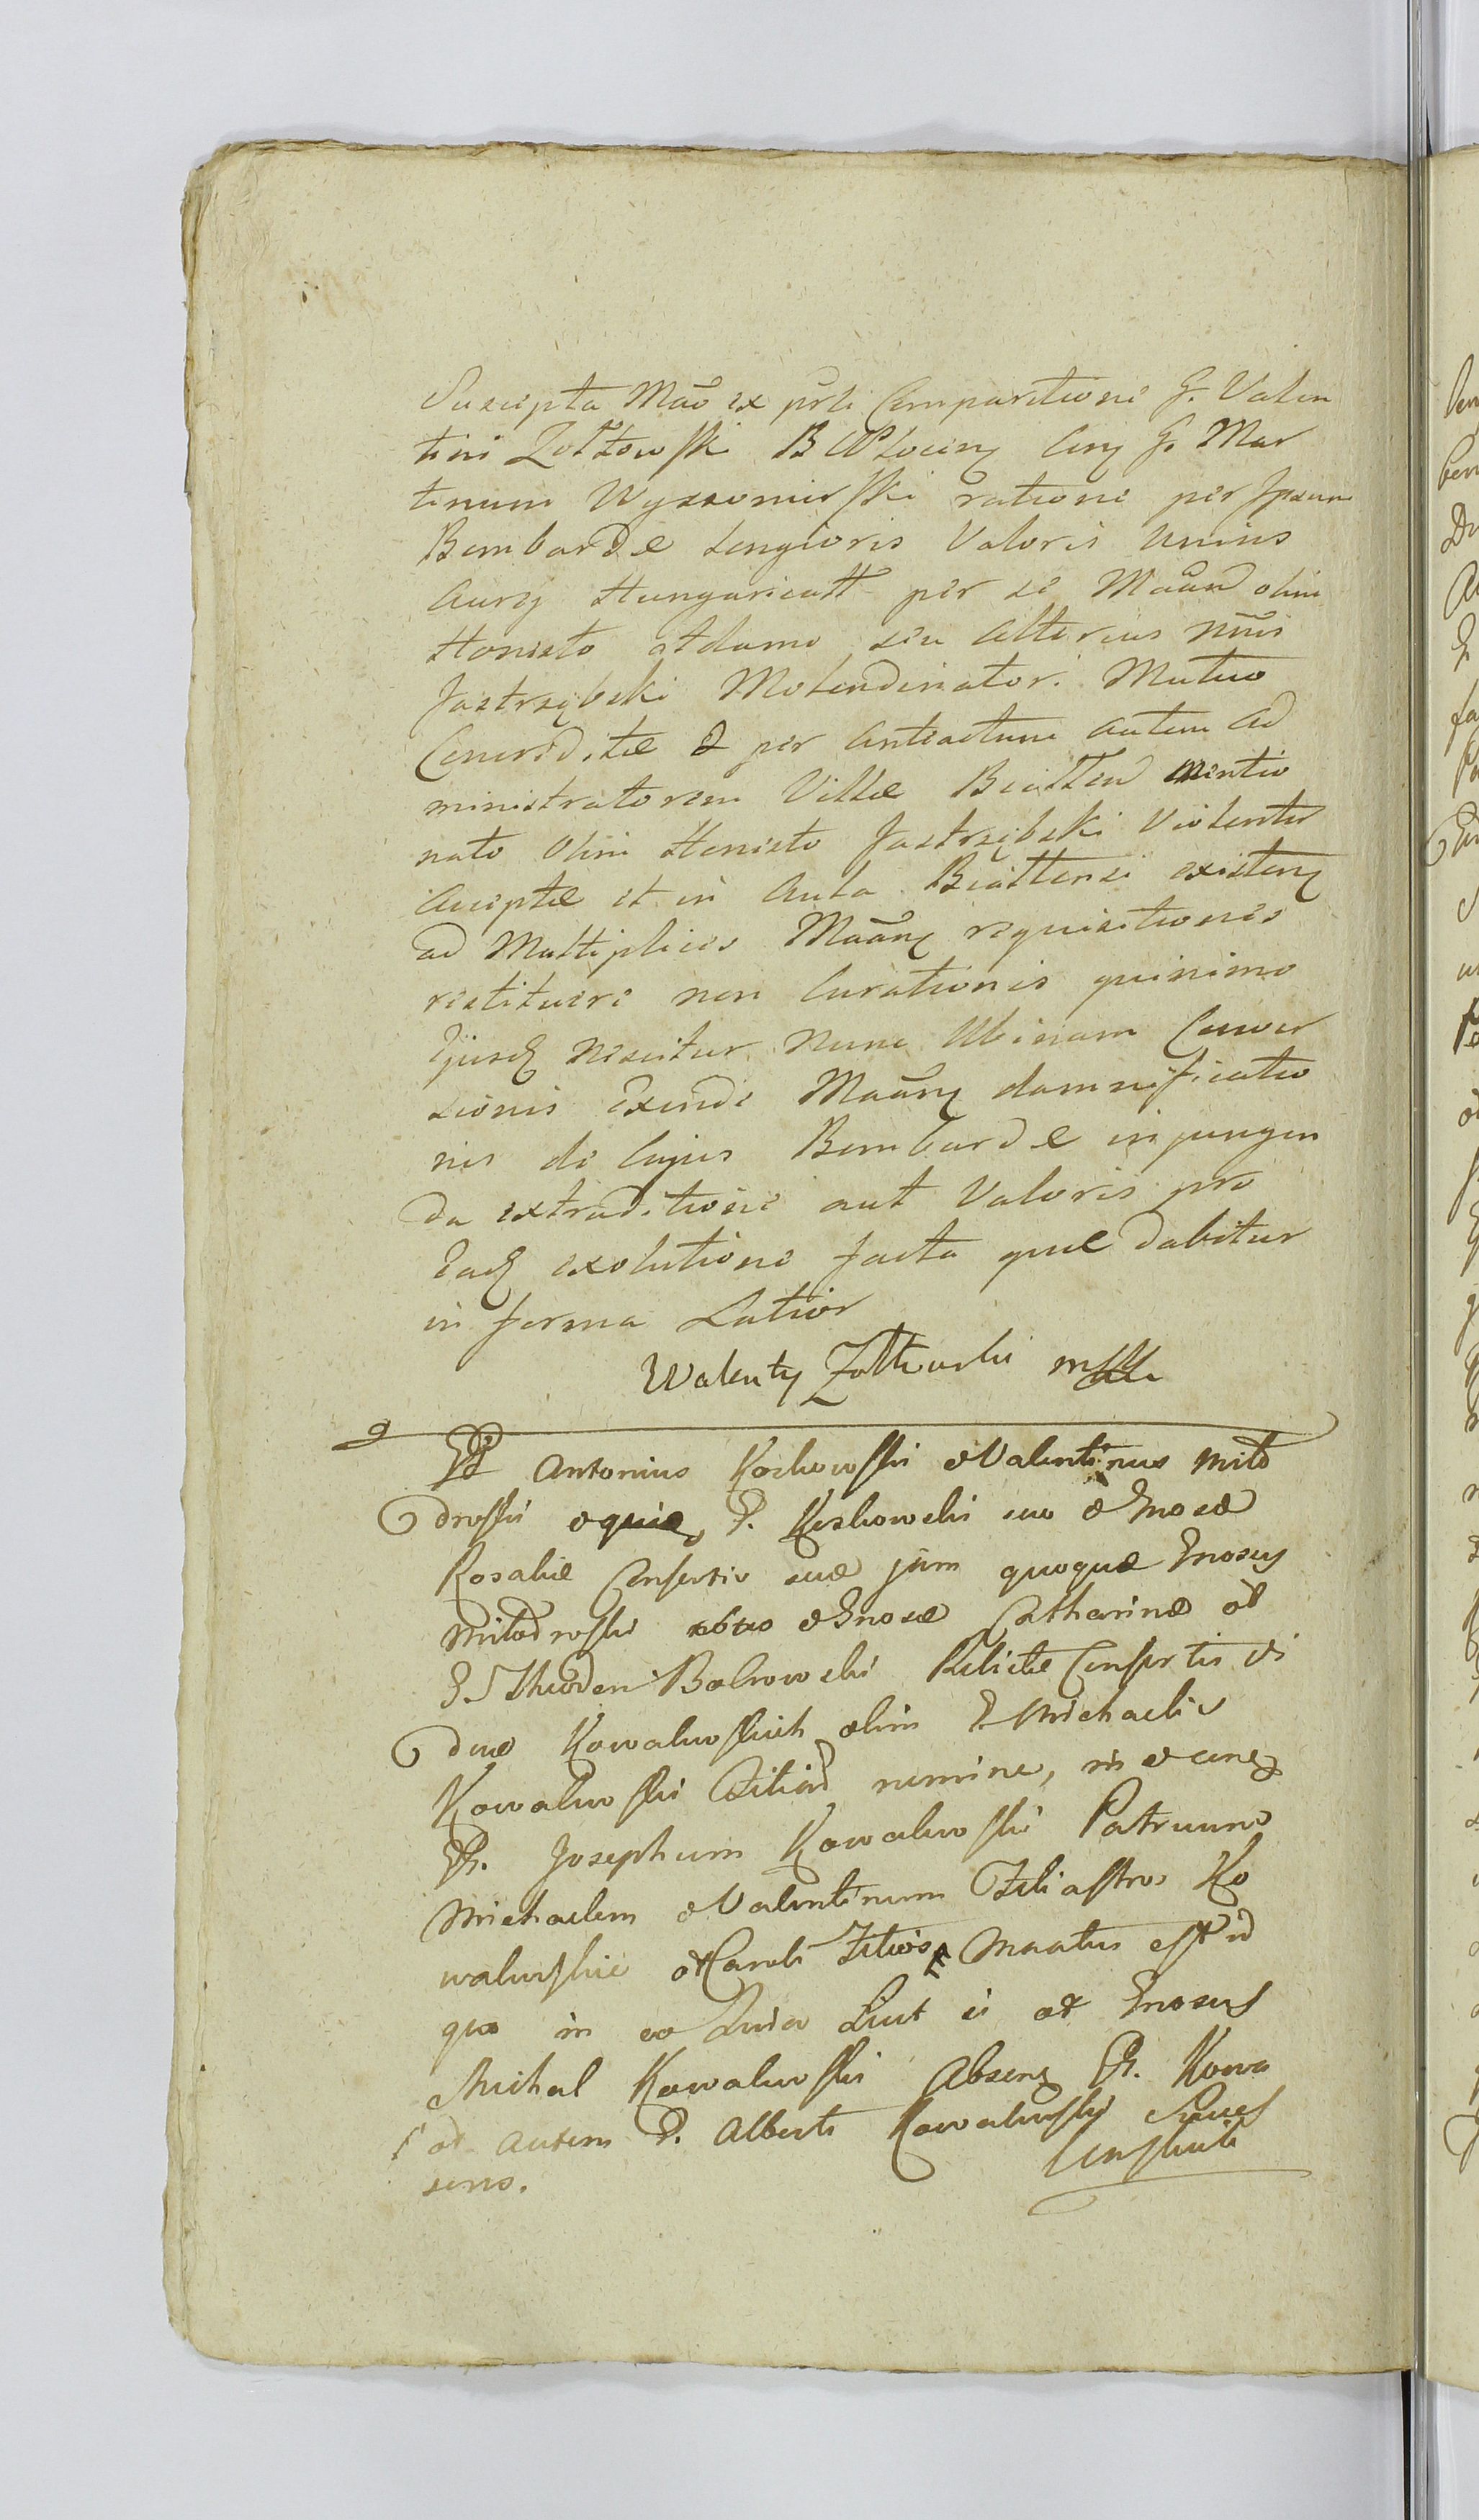 Suscepta Mao ex prti Comparitione G. Valen
tini Zołtowski B Płocin Cim G. Mar
tinum Wyszomirski ratione per Ipsum
Bombardæ Longioris Valoris Unius
Aurei Hungaricatt per se Maand olim
Honesto Adamo seu Alterius nnis
Jastrzębski Molendinatori Mutuo
Concreditæ & per Anteactum autem Ad
ministratorem Villæ mentio
nato Olim Honesto Jastrzębski Violenter
Acceptæ et in Aula existen
ad Multiplices Maan requisitiones
restituere non Curationis quinimo
Ejusd nescitur nunc Ubinam Conver
sionis Exinde Maan damnificatio
nis de Cujus Bombardæ injungen
da extraditione aut Valoris pro
Ead exolutione facta quæ dabitur
in forma Latior
Walenty Zołtowski mpp
Antonius Koskowski & Valentinus Mito
droski & P. Koskowski suo & Gnosæ
Rosaliæ Consortis suæ jam quoquæ Gnosus
Mitodroski & Gnosæ Catharinæ
Relictæ Consortis
duæ Kowalewskich olim G. Michaelis
Kowalewski Filiar nomine, in & cum
G. Josephum Kowalewski Patruum
Michaelem & Valentinum Filiastros Ko
walewskie Maatus est id
quo in eo Quia Licet ii Gnosus
Michal Kowalewski Absen G. Kowa
autem G. Alberti Kowalewski Succes
sens.